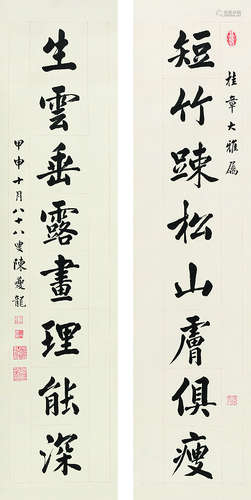 桂章大雅屬
短竹踈松山膚俱瘦
生雲垂露畫理能深
甲申十月八十八叟陳夔龍